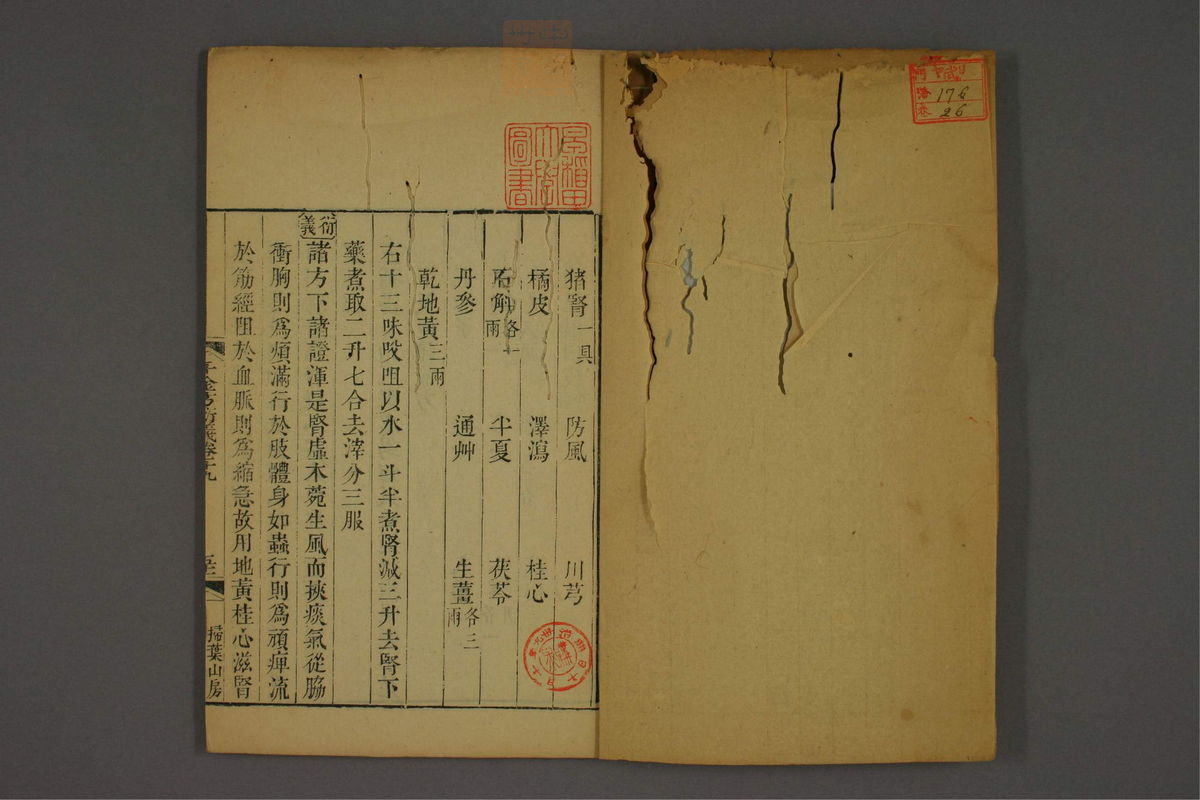 176
26
早稲田
大學
圖書
猪腎一具　防風　川芎
橘皮　澤瀉　桂心
石斛各一兩　半夏　茯苓
丹參　通艸　生薑各三兩
乾地黃三兩
右十三味㕮咀以水一斗半煮腎減三升去腎下
藥煮取二升七合去滓分三服
衍義
諸方下諸證渾是腎虛木菀生風而挾痰氣從脇
衝胸則爲煩滿行於肢體身如蟲行則爲頑痺流
於筋經阻於血脈則爲縮急故用地黃桂心滋腎
千金方衍義卷十九
掃葉山房